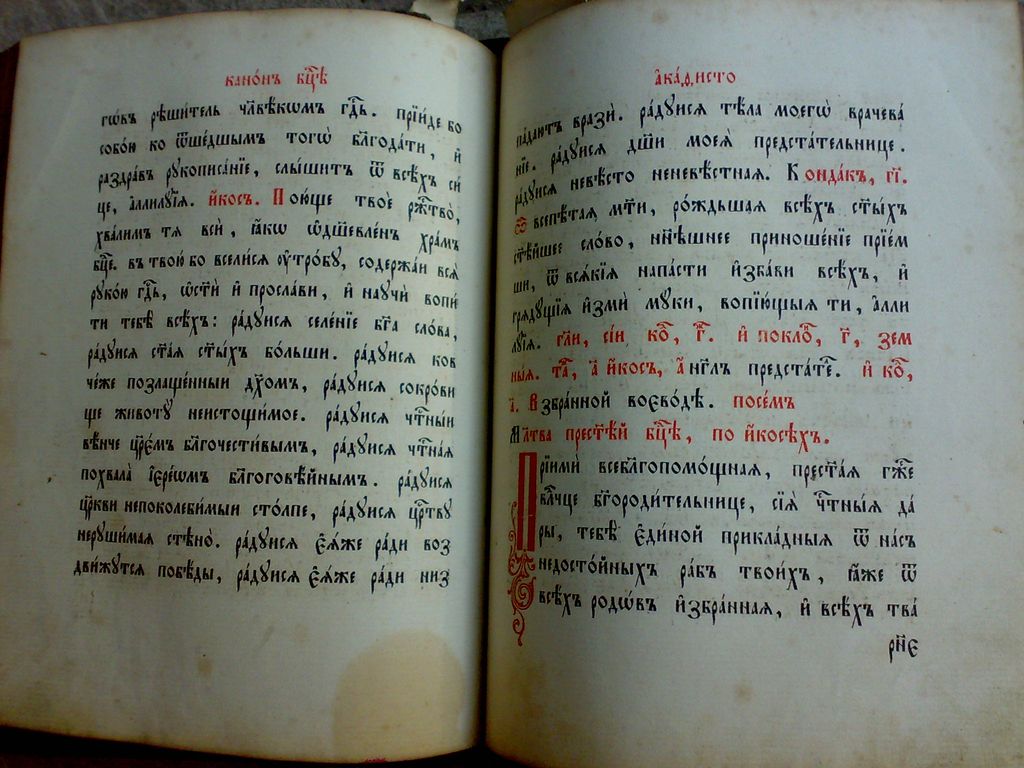 кано́нъ бц҃ѣ
гѡ́въ рѣши́тель чл҃вѣкѡмъ гд҇ь. прїи́де бо
собо́ю ко ѿше́дшымъ того̀ блг҃ода́ти, и҆
раздра́въ рꙋкописа́нїе, слы́шитъ ѿ всѣ́хъ си́
це, а҆ллилꙋ́їѧ. і҆́косъ. Пою́ще твоѐ ржⷭ҇тво̀,
хва́лимъ тѧ всѝ, ꙗ҆́кѡ ѡ҆дш҃евле́нъ хра́мъ
бц҃е. въ твою́ бо всели́сѧ ѹ҆тро́бꙋ, содержа́и всѧ̀
рꙋко́ю гд҇ь, ѡ҆ст҃ѝ и҆ просла́ви, и҆ наꙋчѝ вопи́
ти тебѣ̀ всѣ́хъ: ра́дꙋисѧ селе́нїе бг҃а сло́ва,
ра́дꙋисѧ ст҃а́ѧ ст҃ы́хъ бо́льши. ра́дꙋисѧ ков
че́же позлаще́нныи дх҃омъ, ра́дꙋисѧ сокро́ви
ще животꙋ̀ неистощи́мое. ра́дꙋисѧ чтⷭ҇ны́и
вѣ́нче цр҃е́мъ блг҃очести́вымъ, ра́дꙋисѧ чтⷭ҇на́ѧ
похвала̀ і҆ере́ѡмъ блг҃оговѣ́йнымъ. ра́дꙋисѧ
цр҃кви непоколеби́мыи сто́лпе, ра́дꙋисѧ црⷭ҇твꙋ
нерꙋши́маѧ стѣно̀. ра́дꙋисѧ є҆ѧ́же ра́ди воз
дви́жꙋтсѧ побѣ́ды, ра́дꙋисѧ є҆ѧ́же ра́ди низ
а҆ка́ѳисто
па́даютъ вразѝ. ра́дꙋисѧ тѣ́ла моегѡ̀ врачева́
нїе. ра́дꙋисѧ дш҃и моеѧ̀ предста́тельнице.
ра́дꙋисѧ невѣ́сто неневѣ́стнаѧ. Конда́къ, гі҃.
Ѽ всепѣ́таѧ мт҃и, ро́ждьшаѧ всѣ́хъ ст҃ы́хъ
ст҃ѣ́йшее сло́во, нн҃ѣшнее приноше́нїе прїе́м
ши, ѿ всѧ́кїѧ напа́сти и҆зба́ви всѣ́хъ, и҆
грѧдꙋ́щїѧ и҆змѝ мꙋ́ки, вопїю́щыѧ ти, а҆лли
лꙋ́їѧ. гл҃и, сі́и коⷣ, г҃. и҆ поклоⷩ, г҃, зем
ны́ѧ. таⷤ, а҃ и҆́косъ, а҆́нг҃лъ предста́теⷧ. и҆ коⷣ,
а҃. Взбра́нной воево́дѣ. посе́мъ
Мл҃тва прест҃ѣ́й бц҃ѣ, по і҆́косѣхъ.
Прїимѝ всеблг҃опомо́щнаѧ, прест҃а́ѧ гж҃е
влⷣчце бг҃ороди́тельнице, сїѧ̀ чтⷭ҇ны́ѧ да́
ры, тебѣ̀ є҆ди́ной прикла́дныѧ ѿ на́съ
недосто́йныхъ ра́бъ твои́хъ, ꙗ҆́же ѿ
всѣ́хъ родѡ́въ и҆збра́ннаѧ, и҆ всѣ́хъ тва́
рне